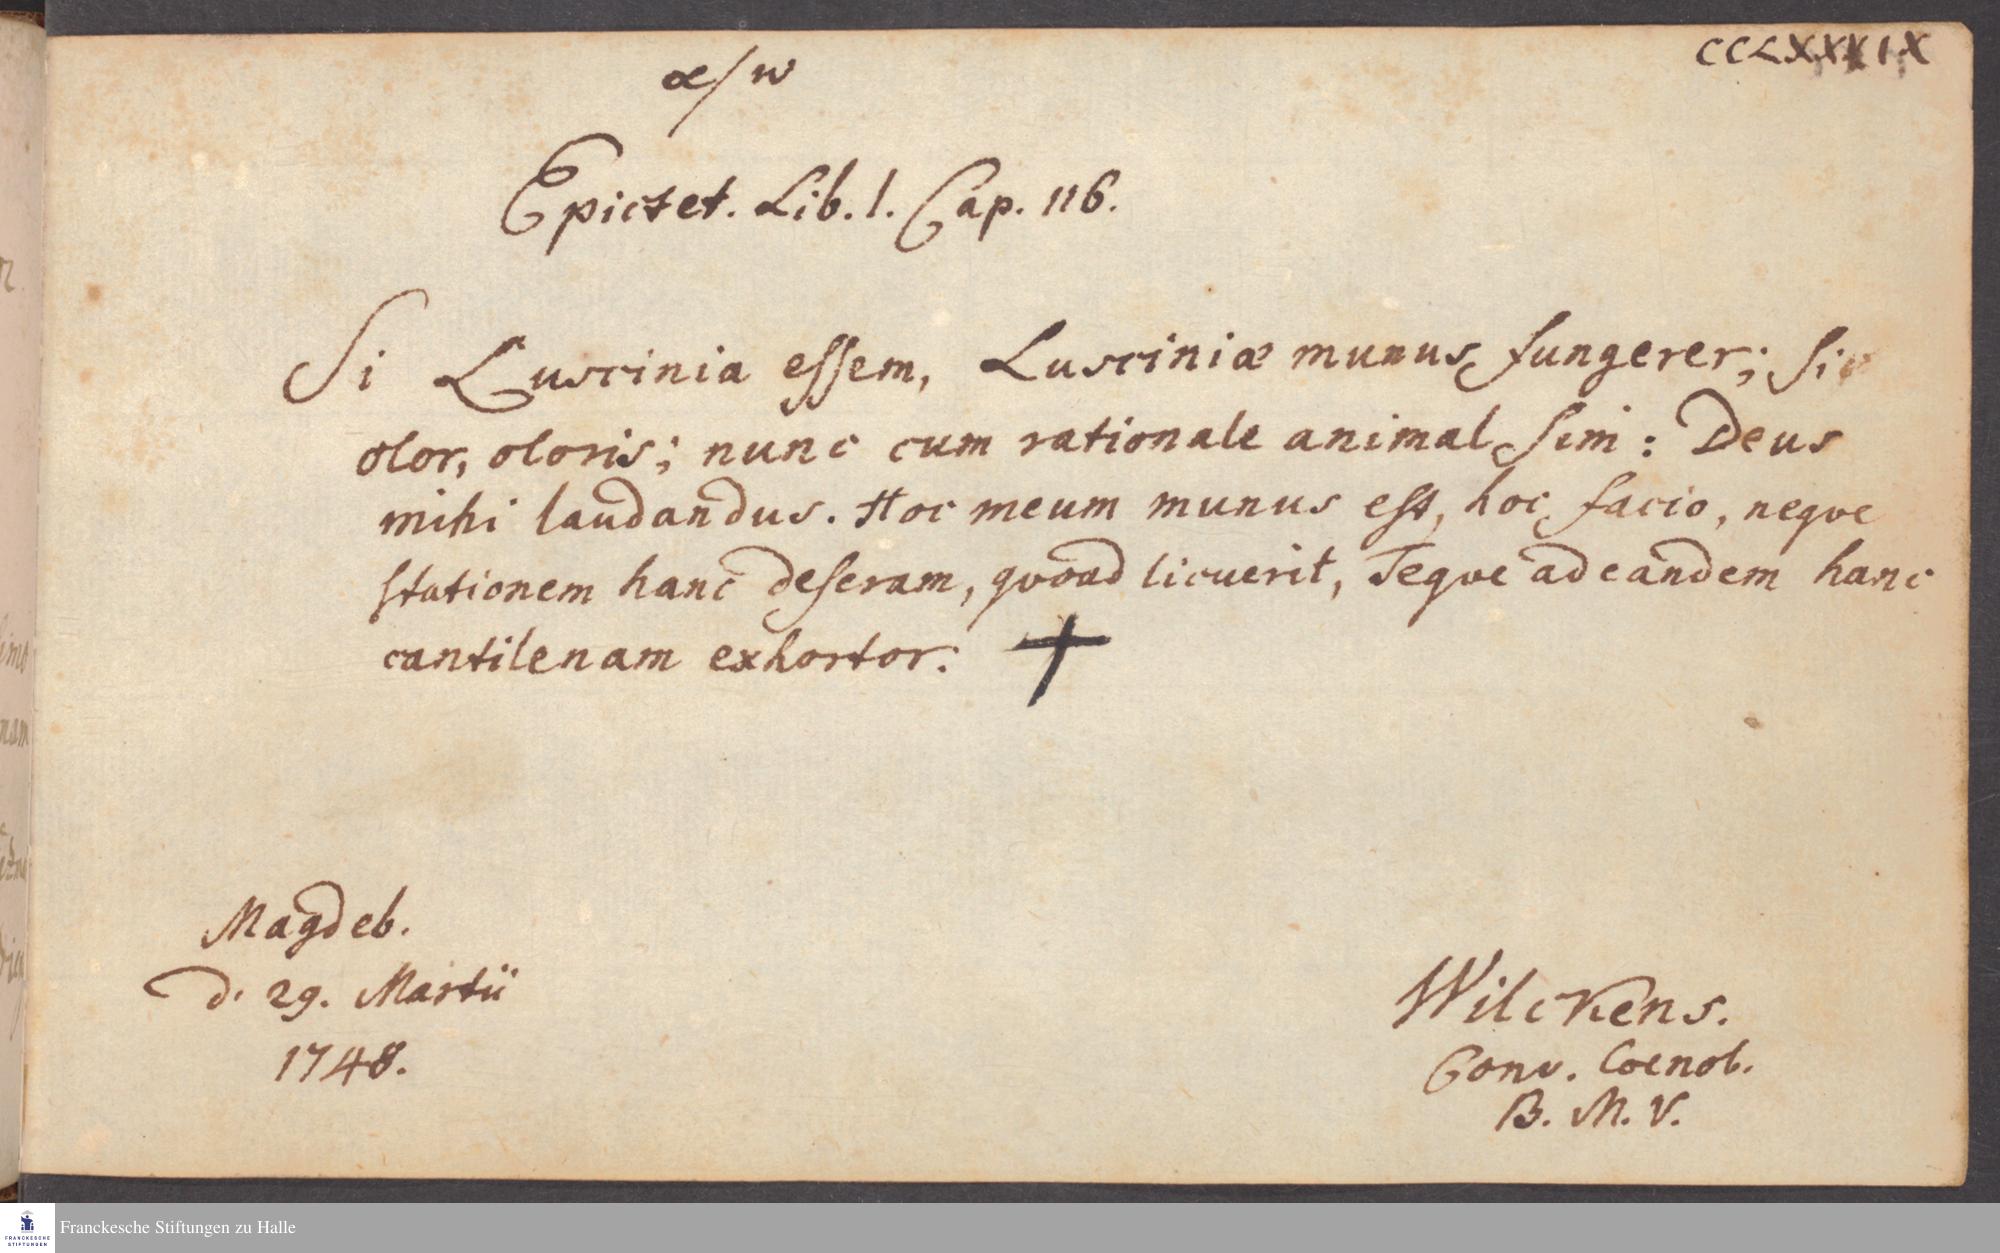 CCLXXXIX
α/ω
Epictet. Lib. 1. Cap. 116.
Si Luscinia essem, Lusciniæ munus fungerer; Si
olor, oloris; nunc cum rationale animal sim: Deus
mihi laudandus. Hoc meum munus est, hoc facio, neqve
stationem hanc deseram, qvoad licuerit, Teqve ad eandem hanc
cantilenam exhortor. †
Magdeb.
d. 29. Martii
1748.
Wilckens.
Conv. Coenob.
B. M. V.
Franckesche Stiftungen zu Halle
FRANCKESCHE
STIFTUNGEN